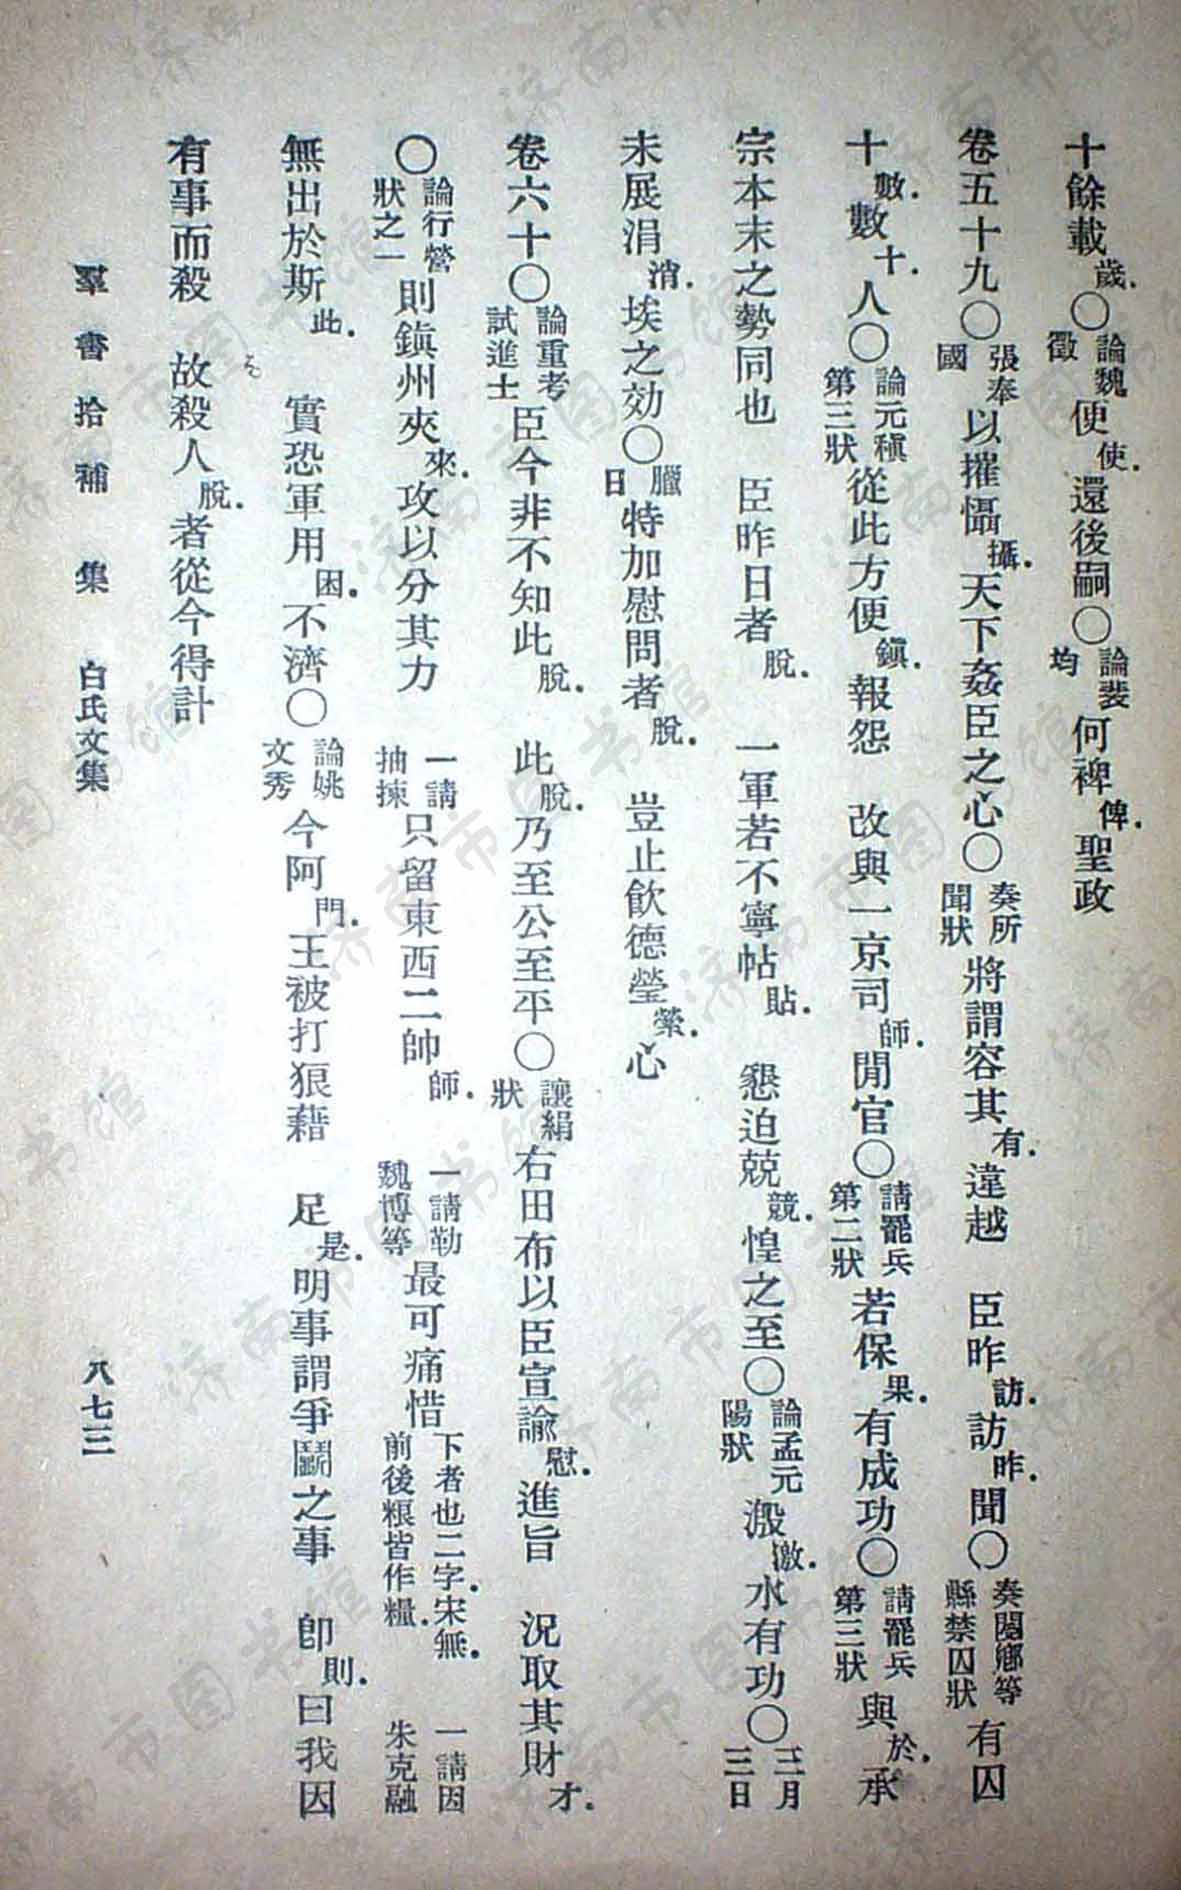 十餘載歲。○論魏徵便使。還後嗣○論裴均何裨俾。聖政
卷五十九○張奉國以摧懾攝。天下姦臣之心○奏所聞狀將謂容其有。違越　臣昨訪。訪昨。聞○奏閿鄉等縣禁囚狀有囚
十數。數十。人○論元稹第三狀從此方便鎭。報怨　改與一京司師。閒官○請罷兵第二狀若保果。有成功○請罷兵第三狀與於。承
宗本末之勢同也　臣昨日者脫。一軍若不寧帖貼。懇迫兢競。惶之至○論孟元陽狀溵激。水有功○三月三日
未展涓消。埃之効○臘日特加慰問者脫。豈止飲德瑩縈。心
卷六十○論重考試進士臣今非不知此脫。此脫。乃至公至平○讓絹狀右田布以臣宣諭慰。進旨　況取其財才。
○論行營狀之一則鎭州夾來。攻以分其力　一請抽揀只留東西二帥師。一請勒魏博等最可痛惜下者也二字。宋無。前後粮皆作糧。一請因朱克融
無出於斯此。實恐軍用困。不濟○論姚文秀今阿門。王被打狼藉　足是。明事謂爭鬭之事　卽則。曰我因
有事而殺　故殺人脫。者從今得計
羣書拾補　集　白氏文集　八七三